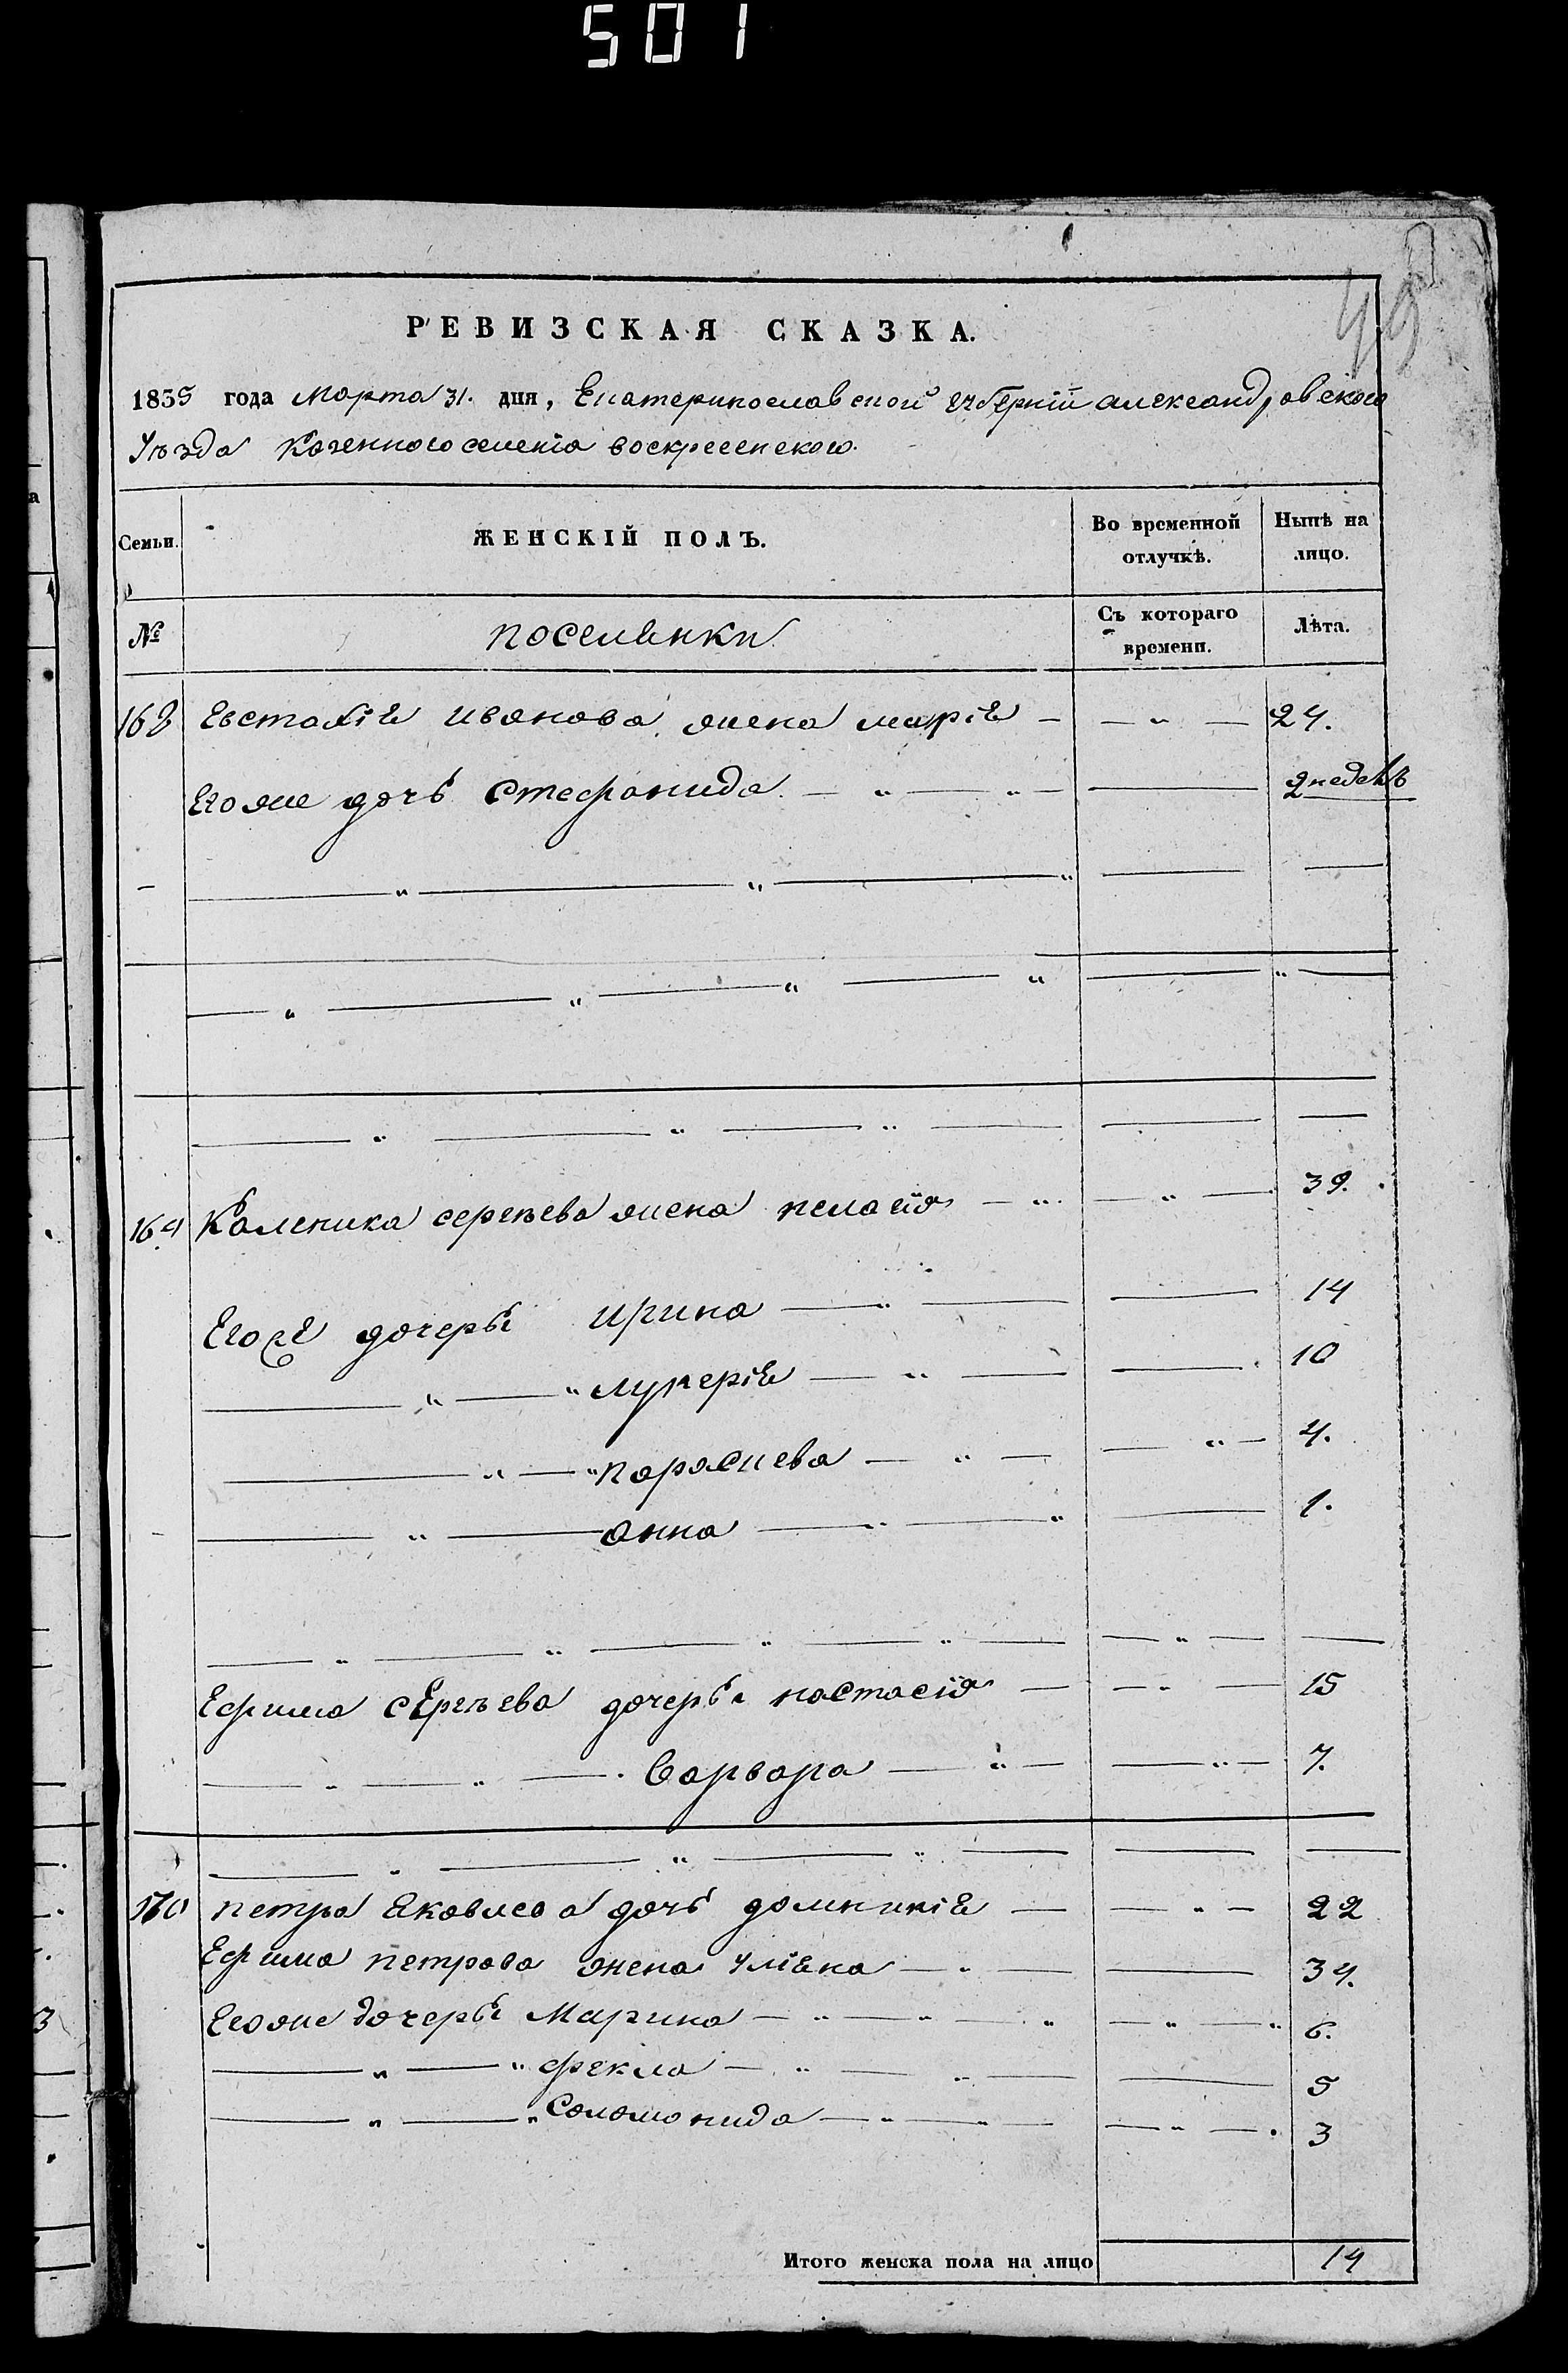 501
РЕВИЗСКАЯ СКАЗКА.
1835 года Марта 31. дня, Екатеринославской губерніи александровского
Уѣзда Казенного селенія воскресенского.
Семьи. ЖЕНСКІЙ ПОЛЪ. Во временной отлучкѣ. Нынѣ на лицо.
№ поселянки Съ котораго времени. Лѣта.
168 Евстафія иванова жена марія — — „ — 24.
Егоже дочь Стефанида — „ — „ — — 2 неделѣ
— — „ — „ — „ — —
— „ — „ — „ — „ — „ —
— „ — „ — „ — — —
169 Каленика сергѣева жена пелагія — „ — „ — 39.
Егоже дочеры ирина — „ — — 14
— „ — „ лукерія — „ — — 10
— „ — „ параскева — „ — — „ — 4.
— „ — анна — „ — „ — 1.
— „ — „ — „ — „ — — „ — —
Ефима сергѣева дочеры настасія — — „ — 15
— „ — „ — варвара — „ — — „ — 7.
— „ — „ — „ — — —
170 петра яковлева дочь домникія — — „ — 22
Ефима петрова жена уліяна — „ — — 34.
Егоже дочеры Марина — „ — „ — „ — „ — „ 6.
— „ — „ фекла — „ — „ — — 5
— „ — „ Соломонида — „ — „ — — „ — 3
Итого женска пола на лицо 14